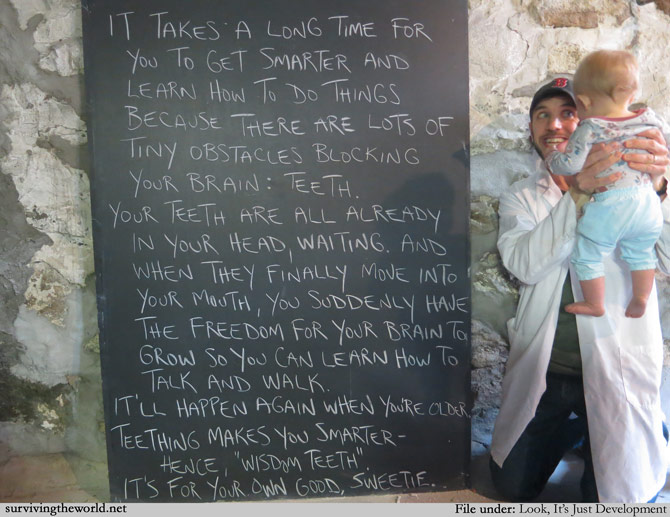 IT TAKES A LONG TIME FOR
YOU TO GET SMARTER AND
LEARN HOW TO DO THINGS
BECAUSE THERE ARE LOTS OF
TINY OBSTACLES BLOCKING
YOUR BRAIN: TEETH.
YOUR TEETH ARE ALL ALREADY
IN YOUR HEAD, WAITING. AND
WHEN THEY FINALLY MOVE INTO
YOUR MOUTH, YOU SUDDENLY HAVE
THE FREEDOM FOR YOUR BRAIN TO
GROW SO YOU CAN LEARN HOW TO
TALK AND WALK.
IT'LL HAPPEN AGAIN WHEN YOU'RE OLDER.
TEETHING MAKES YOU SMARTER-
HENCE, "WISDOM TEETH".
IT'S FOR YOUR OWN GOOD, SWEETIE.
B
survivingtheworld.net
File under: Look, It's Just Development